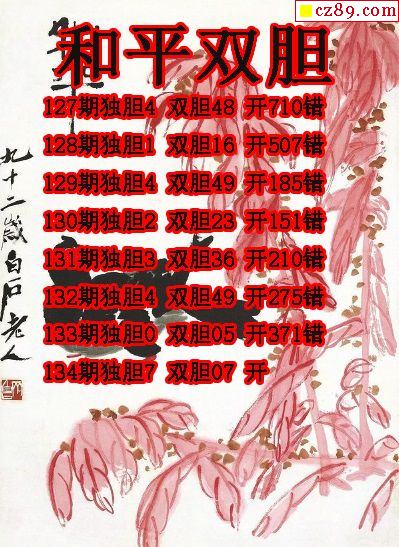 cz89.com
和平双胆
127期独胆4 双胆48 开710错
128期独胆1 双胆16 开507错
129期独胆4 双胆49 开185错
130期独胆2 双胆23 开151错
131期独胆3 双胆36 开210错
132期独胆4 双胆49 开275错
133期独胆0 双胆05 开371错
134期独胆7 双胆07 开
九十二岁白石老人